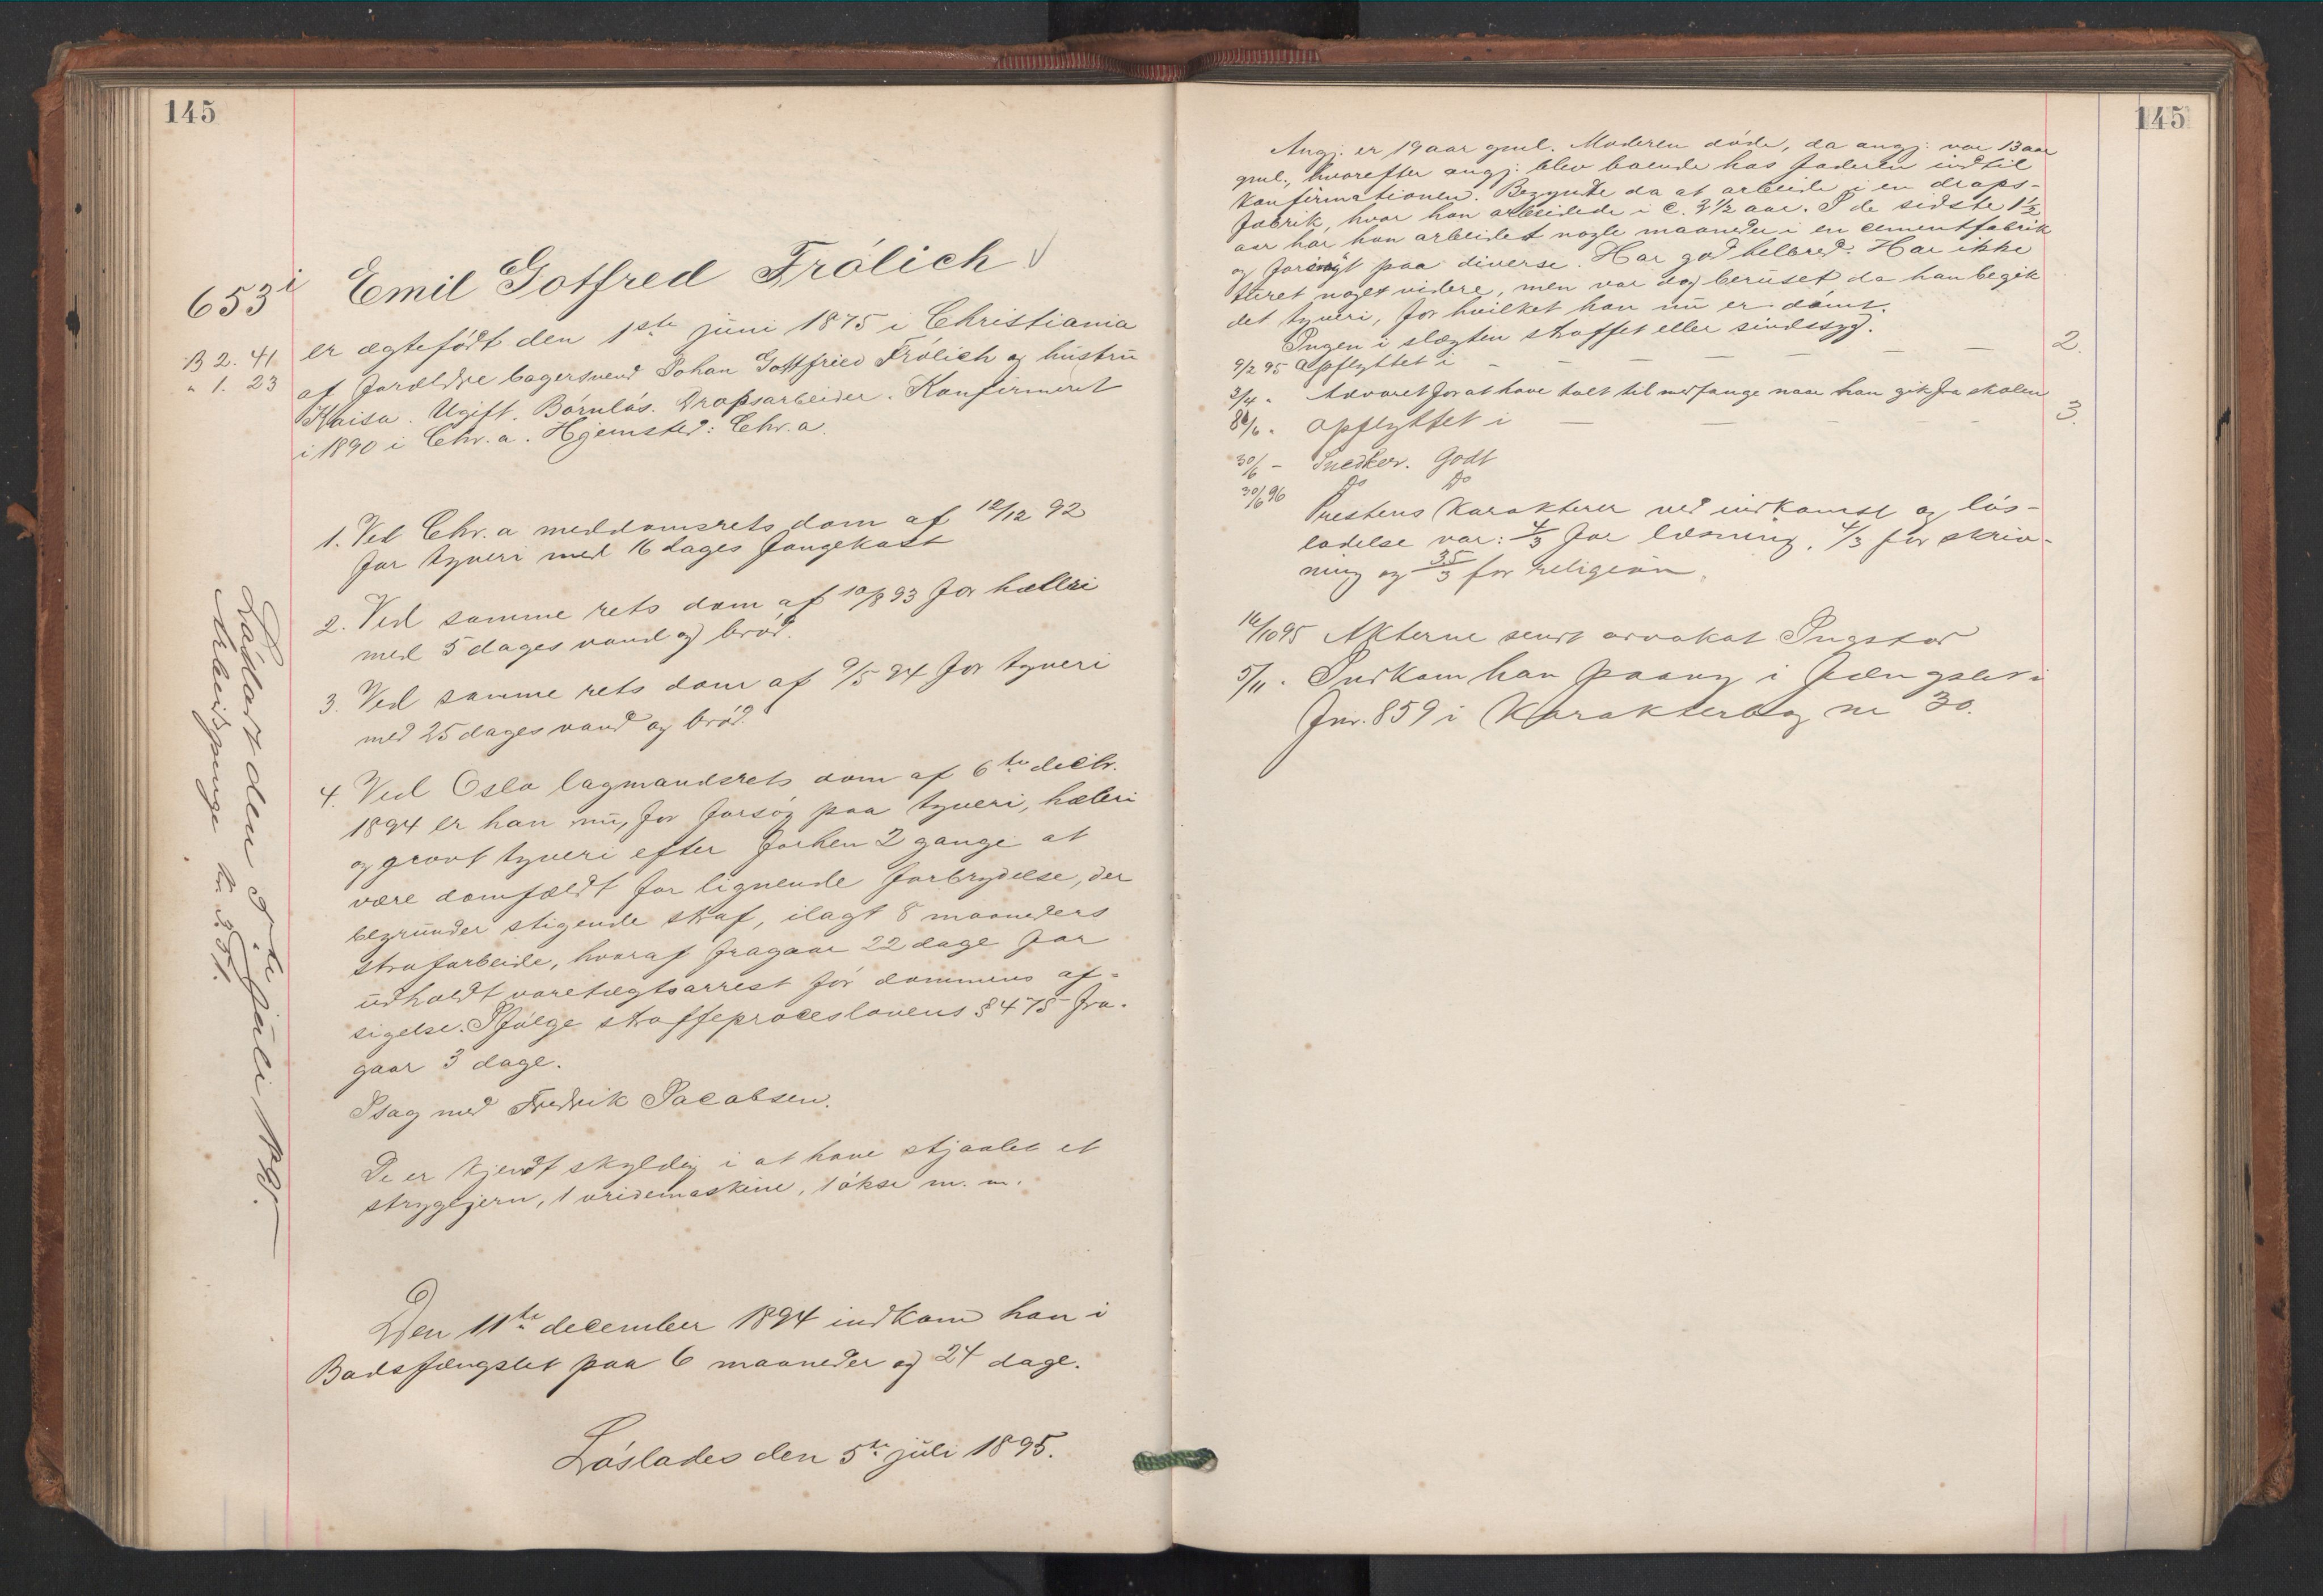 145
653 i Emil Gotfred Frölich
B 2. 41
" 1. 23
er ægtefödt den 1ste juni 1875 i Christiania
af forældre bagersvend Johan Gottfried Frölich og hustru
Kaisa. Ugift. Börnlös. Dropsarbeider. Konfirmeret
i 1890 i Chr.a. Hjemsted: Chr.a.
1. Ved Chr.a meddomsrets dom af 12/12 92
for tyveri med 16 dages fangekost
2. Ved samme rets dom af 10/8 93 for hæleri
med 5 dages vand og bröd.
3. Ved samme rets dom af 9/5 94 for tyveri
med 25 dages vand og bröd.
4. Ved Oslo lagmandsrets dom af 6te decbr.
1894 er han nu, for forsög paa tyveri, hæleri
og grovt tyveri efter forhen 2 gange at
være domfældt for lignende forbrydelse, der
begrunder stigende straf, ilagt 8 maaneders
strafarbeide, hvoraf fragaar 22 dage for
udholdt varetægtsarrest för dommens af-
sigelse. Ifölge straffeproceslovens § 475 fra-
gaar 3 dage.
I sag med Fredrik Jacobsen.
De er kjendt skyldig i at have stjaalet et
strygejern, 1 vridemaskine, 1 ökse m. m.
Den 11te december 1894 indkom han i
Bodsfængslet paa 6 maaneder og 24 dage.
Löslades den 5te juli 1895.
Lösladt den 5te juli 1895.
Arbeidspenge kr.
145
Angj. er 19 aar gml. Moderen döde, da angj. var 13 aar
gml., hvorefter angj. blev boende hos faderen indtil
konfirmationen. Begyndte da at arbeide i en drops-
fabrik, hvor han arbeidede i c. 3½ aar. I de sidste 1½
aar har han arbeidet nogle maaneder i en cementfabrik
og forövrigt paa diverse. Har god helbred. Har ikke
turet noget videre, men var dog beruset da han begik
det tyveri, for hvilket han nu er dömt.
Ingen i slægten straffet eller sindssyg.
9/2 95 Opflyttet i — — — — — — 2.
2/4 " Advaret for at have talt til medfange naar han gik fra skolen
8/6 " Opflyttet i — — — — 3.
30/6 - Snedker. Godt
30/6 96 Do Do
Prestens karakterer ved indkomst og lös-
ladelse var: 4/3 for læsning, 4/3 for skriv-
ning og 3.5/3 for religion.
16/10 95 Akterne sendt advokat Ingstad
5/11 " Indkom han paany i fængslet i
Fnr. 859 i Karakterbog nr 30.